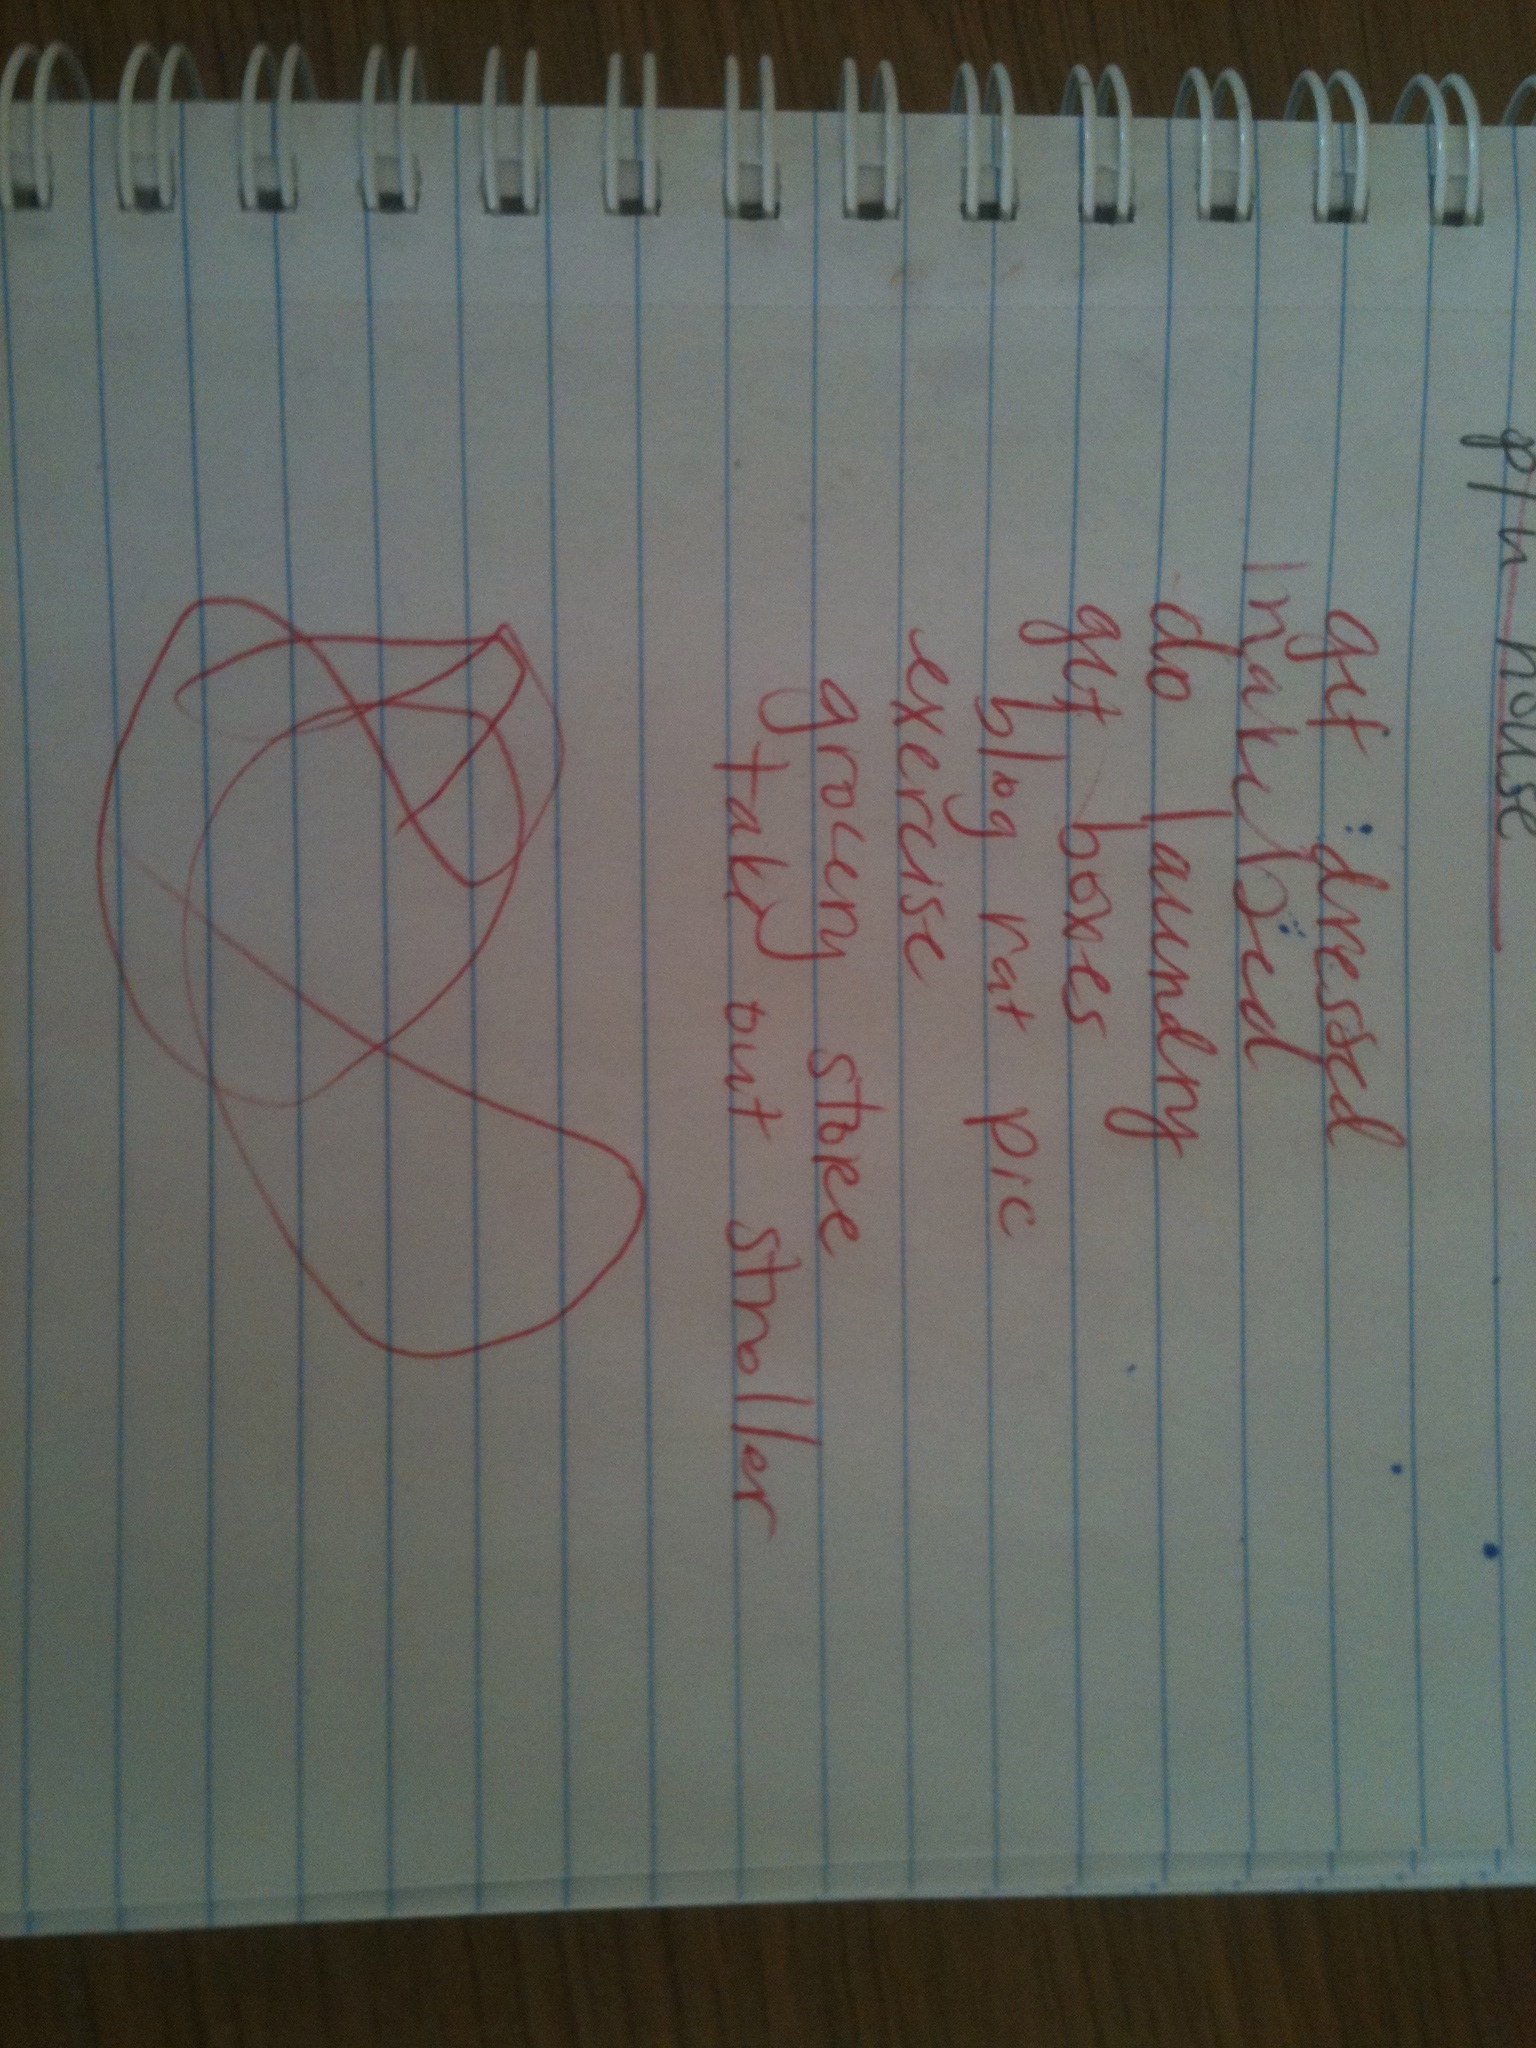 p/u house
get dressed
make bed
do laundry
get boxes
blog rat pic
exercise
grocery store
take out stroller